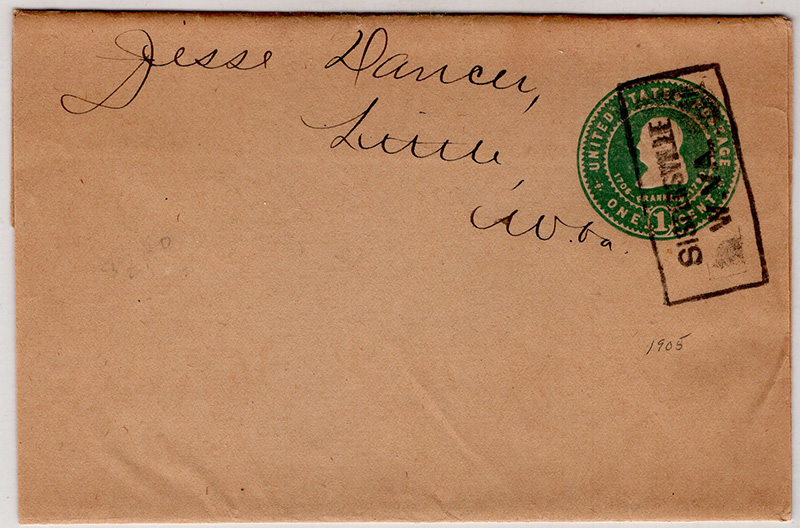 Jesse Dancer,
Little,
W. Va.
UNITED STATES POSTAGE
1706 FRANKLIN 1790
ONE 1 CENT
SISTERSVILLE
W. VA.
1905